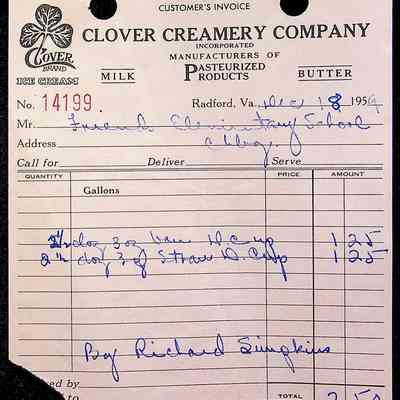 CUSTOMER'S INVOICE
CLOVER CREAMERY COMPANY
INCORPORATED
MANUFACTURERS OF
CLOVER BRAND ICE CREAM
MILK PASTEURIZED PRODUCTS BUTTER
No. 14199. Radford, Va. Dec 18 1959
Mr. Friends Elementary School
Address
Call for Deliver Serve
QUANTITY PRICE AMOUNT
Gallons
2½ doz 3 oz Van D. Cup 1 25
2½ doz 3 oz Straw D. Cup 1 25
By Richard Simpkins
by
to TOTAL 2 50